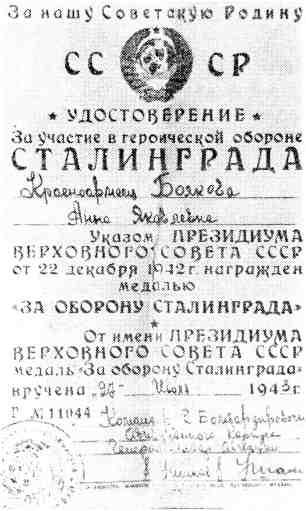 За нашу Советскую Родину
СС СР
★ УДОСТОВЕРЕНИЕ ★
За участие в героической обороне
СТАЛИНГРАДА
Красноармеец Боякова
Анна Яковлевна
Указом ПРЕЗИДИУМА
ВЕРХОВНОГО СОВЕТА СССР
от 22 декабря 1942г. награжден
медалью
«ЗА ОБОРОНУ СТАЛИНГРАДА»
★
От имени ПРЕЗИДИУМА
ВЕРХОВНОГО СОВЕТА СССР
медаль «За оборону Сталинграда»
вручена " " Июля 1943г.
Г №11044 Командир 2 Бомбардировочн
Авиационного Корпуса
Генерал-майор авиации